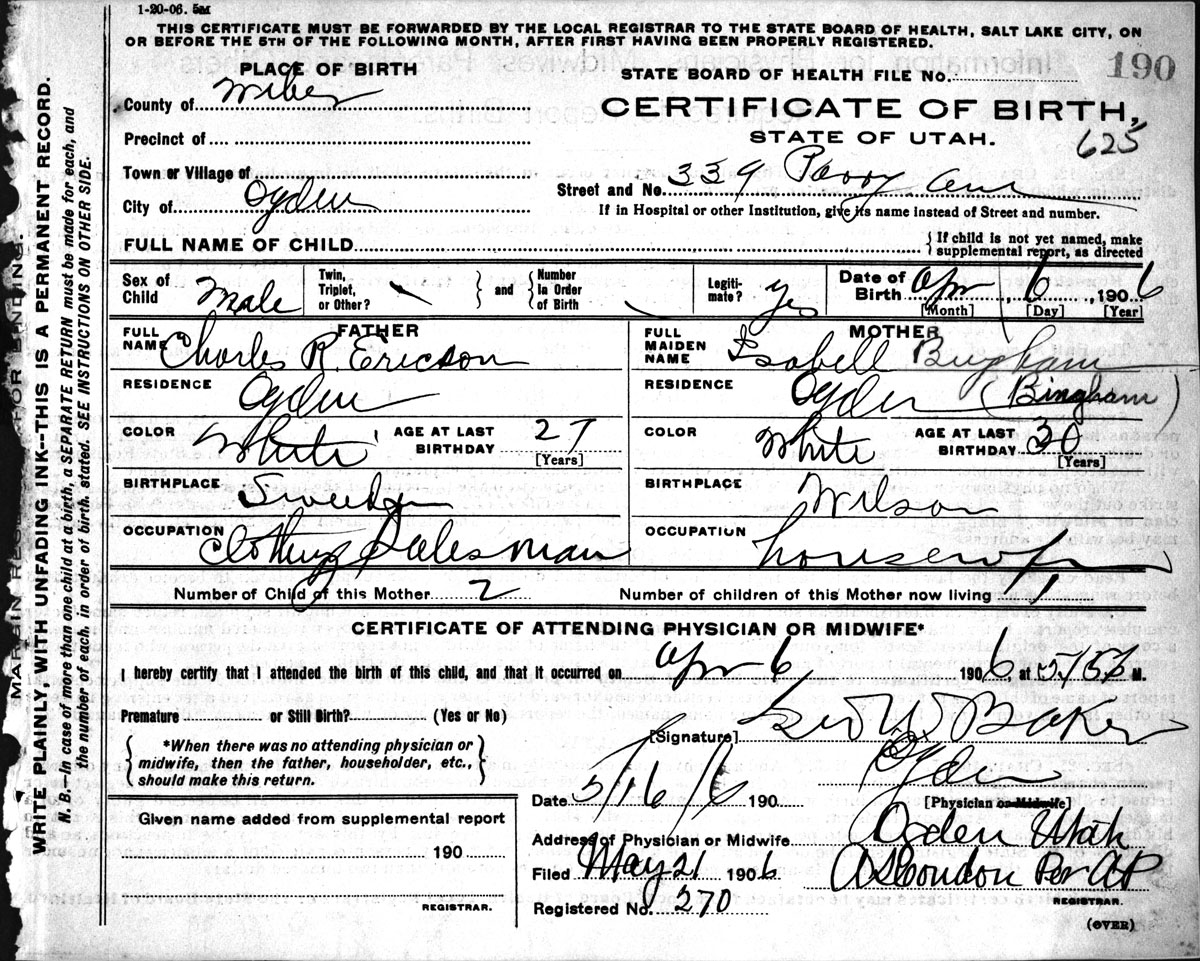 1-20-06. 5M
THIS CERTIFICATE MUST BE FORWARDED BY THE LOCAL REGISTRAR TO THE STATE BOARD OF HEALTH, SALT LAKE CITY, ON
OR BEFORE THE 5TH OF THE FOLLOWING MONTH, AFTER FIRST HAVING BEEN PROPERLY REGISTERED.
PLACE OF BIRTH
STATE BOARD OF HEALTH FILE No. 190
County of Weber
CERTIFICATE OF BIRTH,
Precinct of
STATE OF UTAH.
625
Town or Village of
Street and No. 339 Perry
City of Ogden
If in Hospital or other Institution, give its name instead of Street and number.
FULL NAME OF CHILD
{If child is not yet named, make
supplemental report, as directed
Sex of Child Male
Twin, Triplet, or Other?
and
Number in Order of Birth
Legiti-mate? yes
Date of Birth Apr 6, 1906
[Month] [Day] [Year]
FATHER
FULL NAME Charles R. Ericson
MOTHER
FULL MAIDEN NAME Isabell Bingham
RESIDENCE Ogden
RESIDENCE Ogden (Bingham)
COLOR White
AGE AT LAST BIRTHDAY 27
[Years]
COLOR White
AGE AT LAST BIRTHDAY 30
[Years]
BIRTHPLACE Sweden
BIRTHPLACE Wilson
OCCUPATION Clothing Salesman
OCCUPATION housewife
Number of Child of this Mother 2
Number of children of this Mother now living 1
CERTIFICATE OF ATTENDING PHYSICIAN OR MIDWIFE*
I hereby certify that I attended the birth of this child, and that it occurred on Apr 6 1906, at M.
Premature or Still Birth? (Yes or No)
{*When there was no attending physician or
midwife, then the father, householder, etc.,
should make this return.}
[Signature] Baker
Ogden
[Physician or Midwife]
Date 5/16/6 190
Given name added from supplemental report
190
REGISTRAR.
Address of Physician or Midwife Ogden Utah
Filed May 21 1906
Condon Per
REGISTRAR.
Registered No. 270
(OVER)
MARGIN RESERVED FOR BINDING.
WRITE PLAINLY WITH UNFADING INK--THIS IS A PERMANENT RECORD.
N. B.—In case of more than one child at a birth, a SEPARATE RETURN must be made for each, and
the number of each, in order of birth, stated. SEE INSTRUCTIONS ON OTHER SIDE.